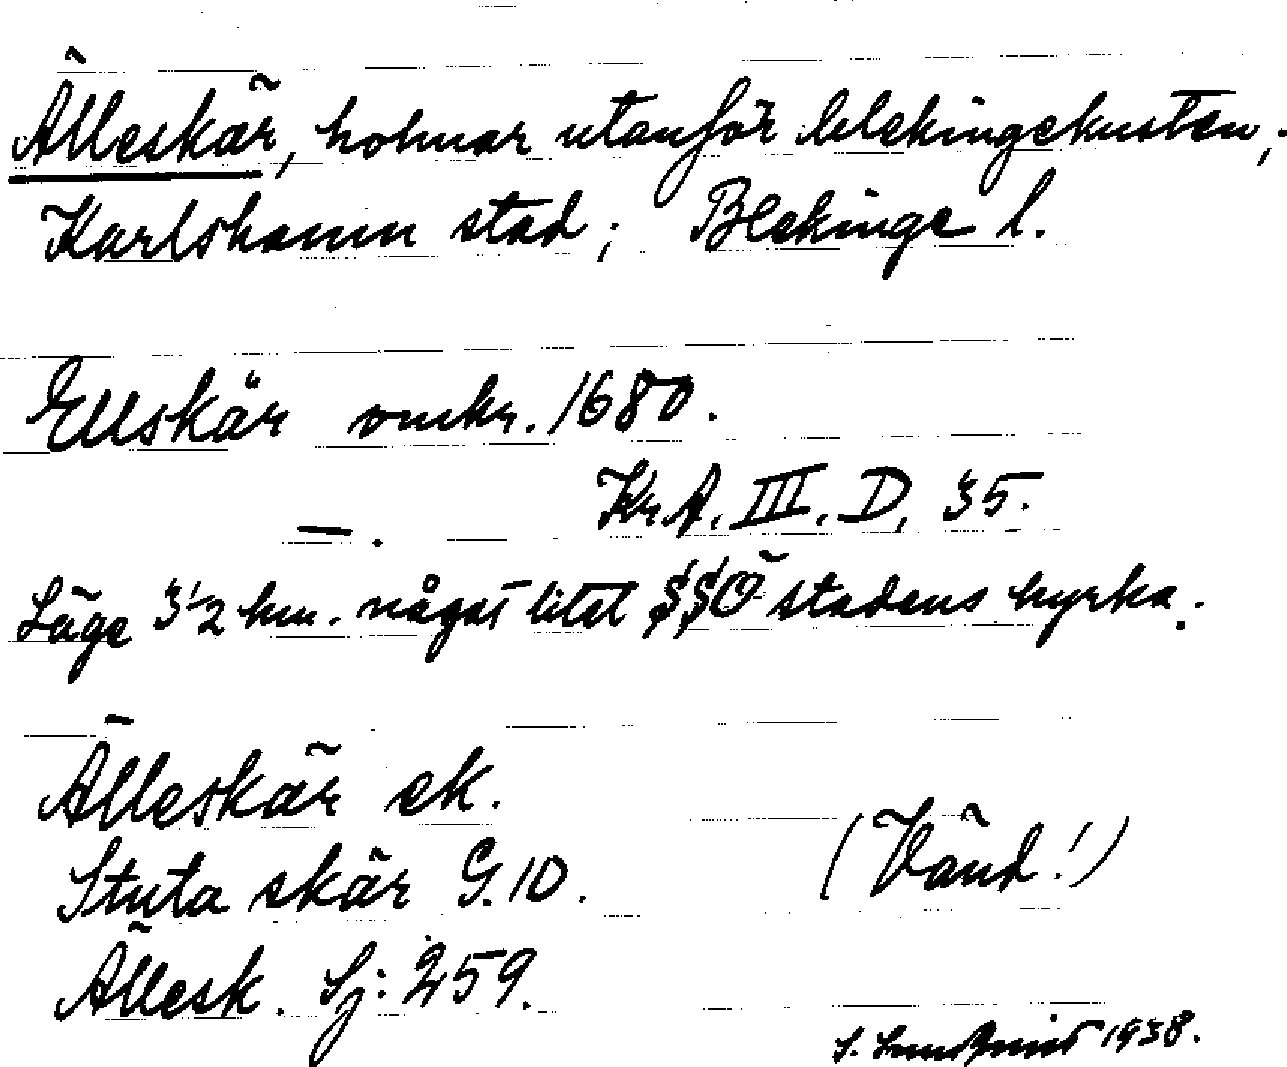 Älleskär, holmar utanför blekingekusten,
Karlshamn stad; Blekinge l.
Ellskär omkr. 1680.
—. Kr.A. III. D, 35.
Läge 3½ km. något litet SSÖ stadens kyrka.
Älleskär ek.
Stuta skär G. 10.
(Vänd!)
Ällesk. Sj: 259.
1938.